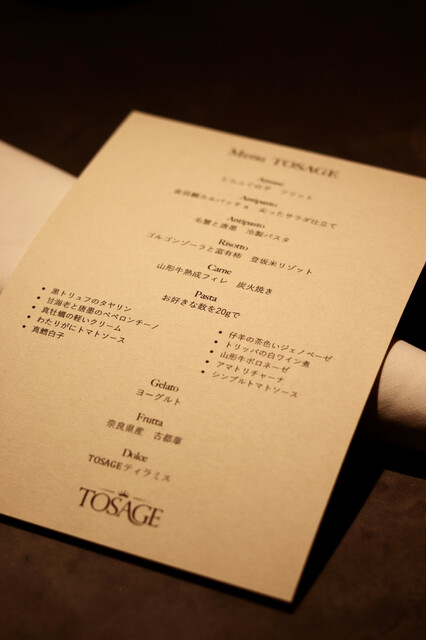 Menu TOSAGE
Amuse
とらふぐ白子　フリット
Antipasto
金目鯛カルパッチョ　サラダ仕立て
Antipasto
毛蟹と唐墨　冷製パスタ
Risotto
ゴルゴンゾーラと富有柿　登坂米リゾット
Carne
山形牛熟成フィレ　炭火焼き
Pasta
お好きな数を20gで
黒トリュフのタヤリン
甘海老と唐墨のペペロンチーノ
真牡蠣の軽いクリーム
わたりがにトマトソース
真鱈白子
仔羊の茶色いジェノベーゼ
トリッパの白ワイン煮
山形牛ボロネーゼ
アマトリチャーナ
シンプルトマトソース
Gelato
ヨーグルト
Frutta
奈良県産　古都華
Dolce
TOSAGEティラミス
TOSAGE